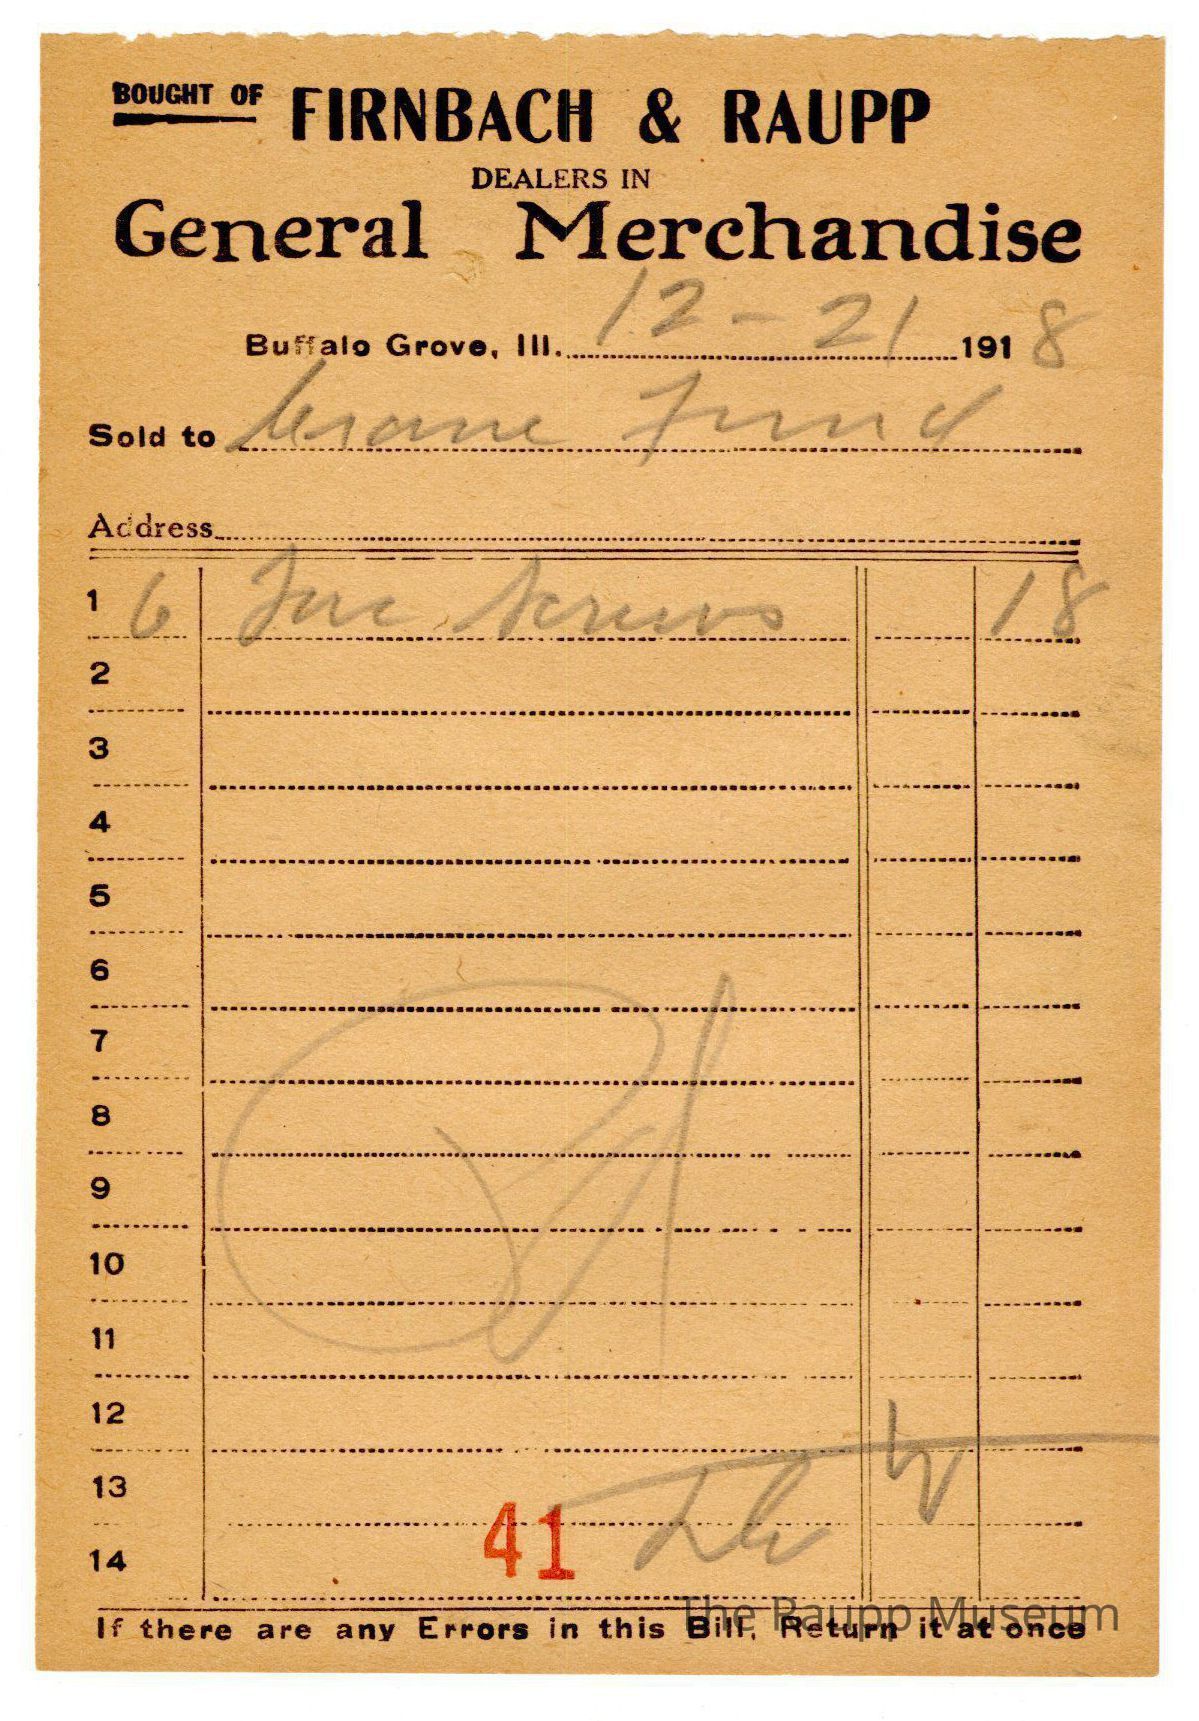 BOUGHT OF FIRNBACH & RAUPP
DEALERS IN
General Merchandise
Buffalo Grove, Ill. 12-21 1918
Sold to
Address
1 6 Screws 18
2
3
4
5
6
7
8
9
10
11
12
13
41
14
If there are any Errors in this Bill, Return it at once
The Raupp Museum